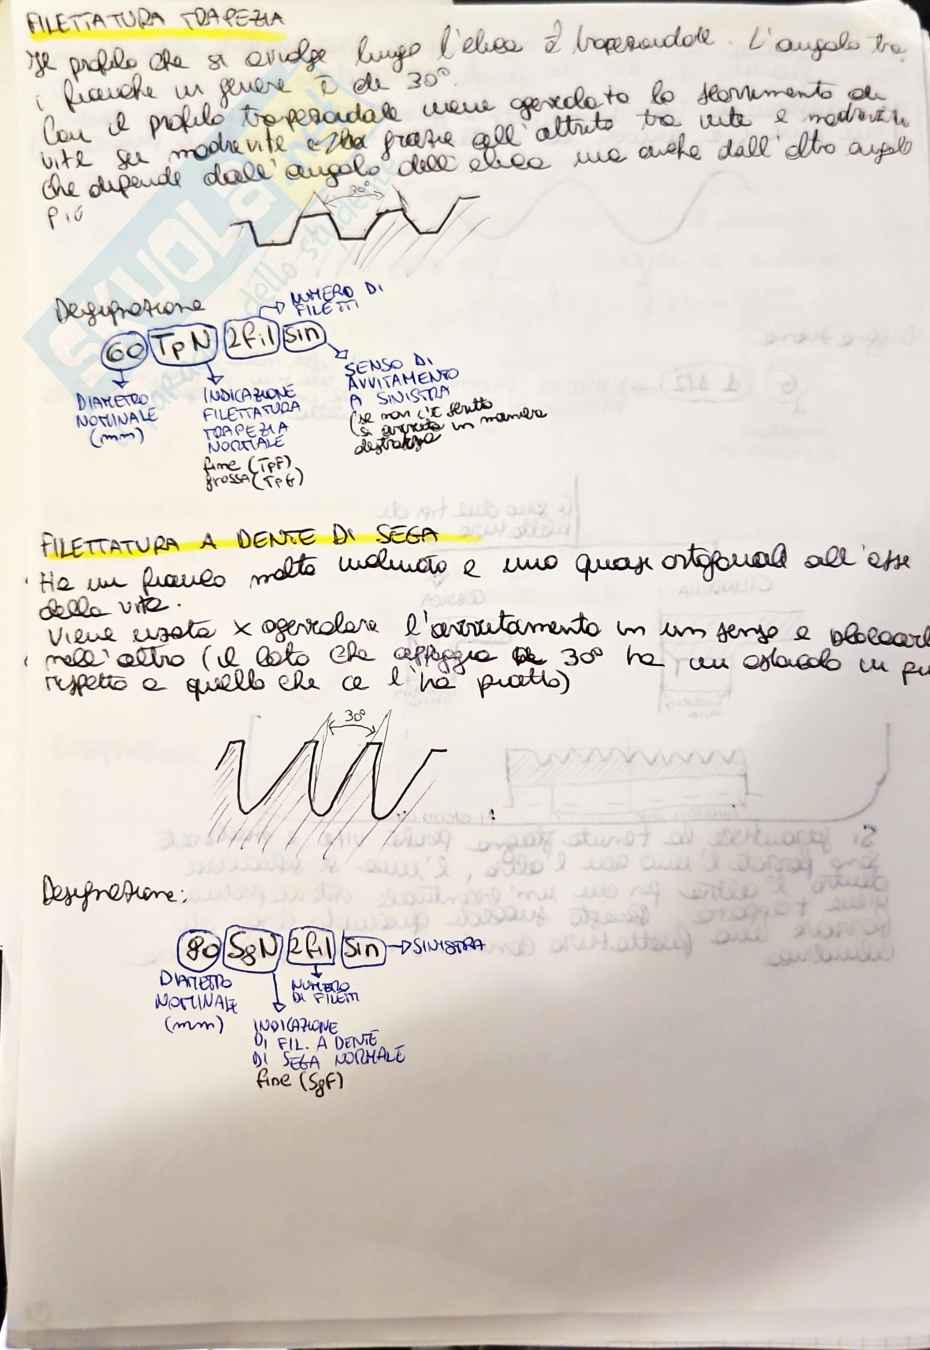 FILETTATURA TRAPEZIA
Il profilo che si avvolge lungo l'elica è trapezoidale. L'angolo tra
i fianchi in genere è di 30°.
Con il profilo trapezoidale viene agevolato lo scorrimento di
vite su madrevite grazie all'attrito tra vite e madrevite
che dipende dall'angolo dell'elica ma anche dall'altro angolo
più
30°
Designazione
NUMERO DI
FILETTI
60 TpN 2fil sin
DIAMETRO
NOMINALE
(mm)
INDICAZIONE
FILETTATURA
TRAPEZIA
NORMALE
fine (TpF)
grossa (TpG)
SENSO DI
AVVITAMENTO
A SINISTRA
(se non c'è scritto
si avvita in maniera
destrorsa
FILETTATURA A DENTE DI SEGA
Ha un fianco molto inclinato e uno quasi ortogonale all'asse
della vite.
Viene usata x agevolare l'avvitamento in un senso e
nell'altro (il lato che appoggia 30° ha un ostacolo in
rispetto a quello che ce l'ha piatto)
30°
Designazione:
80 SgN 2fil sin SINISTRA
DIAMETRO
NOMINALE
(mm)
NUMERO
DI FILETTI
INDICAZIONE
DI FIL. A DENTE
DI SEGA NORMALE
fine (SgF)
SKUOLA